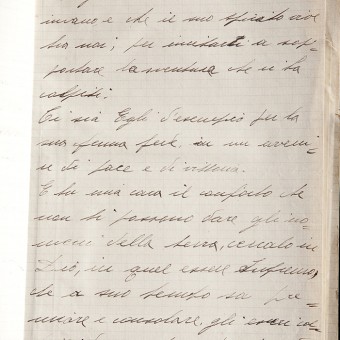 invano e che il suo spirito vive
tra noi; per incitarti a sop-
portare la sventura che vi ha
colpiti.
Ti sia Egli d'esempio per la
sua ferma fede, in un avveni-
re di pace e di vittoria.
E tu mia cara il conforto che
non ti possono dare gli uo-
mini della terra, cercalo in
Dio, in quel essere Supremo,
che a suo tempo sa pre-
miare e consolare, gli